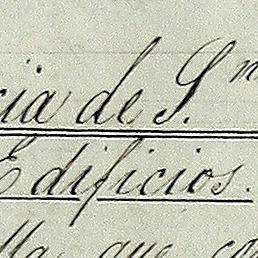 cia de S. m
Edificios.
lla que co